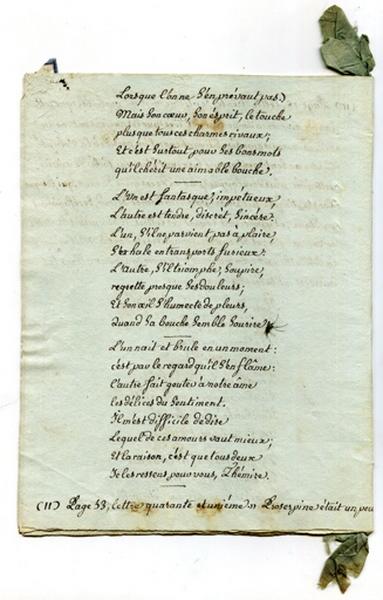 Lorsque l'on ne s'en prévaut pas.
Mais son cœur, son esprit, le touche
plus que tous ces charmes rivaux;
Et c'est surtout, pour les bons mots
qu'il chérit une aimable bouche.
L'un est fantasque, impétueux,
L'autre est tendre, discret, sincère.
L'un, s'il ne parvient pas à plaire,
S'exhale en transports furieux.
L'autre, s'il triomphe, soupire,
regrette presque ses douleurs;
Et son œil s'humecte de pleurs,
quand sa bouche semble sourire
L'un nait et brule en un moment:
c'est par le regard qu'il s'enflâme:
l'autre fait gouter à notre âme
les délices du sentiment.
Il m'est difficile de dire
Lequel de ces amours vaut mieux;
Et la raison, c'est que tous deux
Je les ressens, pour vous, Thémire.
(11) Page 53, lettre quarante et unième » Proserpine était un peu